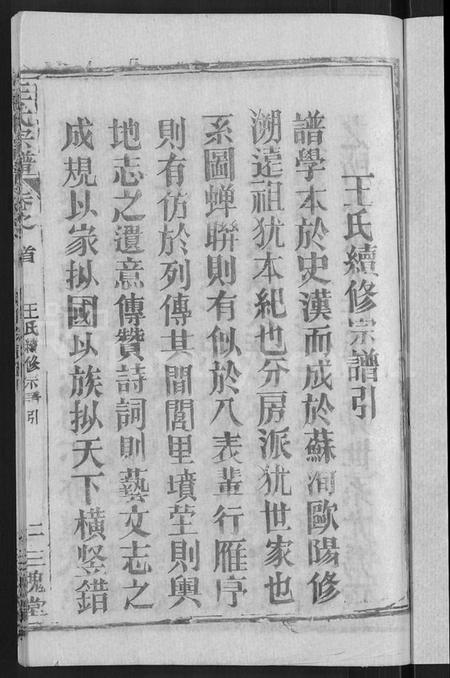 王氏續修宗譜引
譜學本於史漢而成於蘇洵歐陽修
溯遠祖犹本紀也分房派犹世家也
系圖蟬聯則有似於八表輩行雁序
則有仿於列傳其間閭里墳茔則輿
地志之遺意傳贊詩詞則藝文志之
成規以家拟國以族拟天下橫竖錯
王氏宗譜
卷之首
王氏續修宗譜引
三槐堂